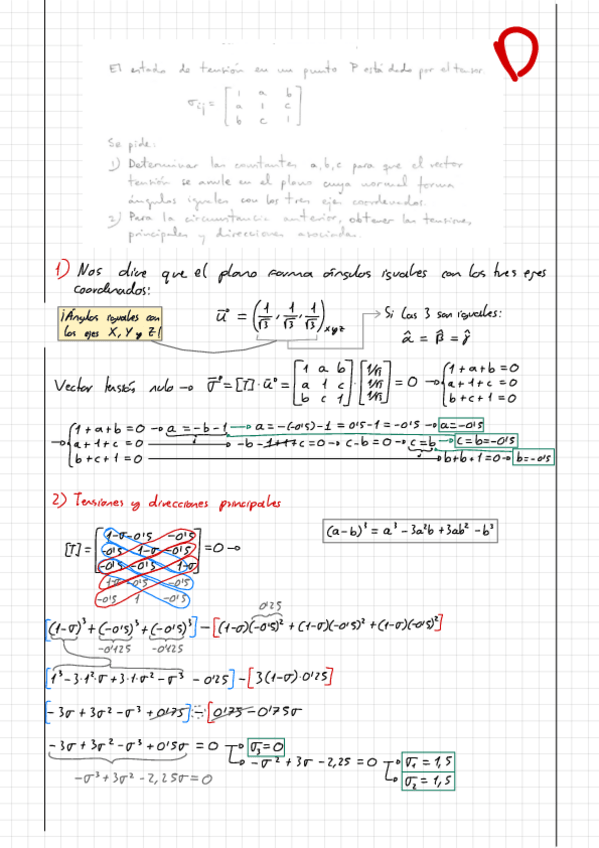 El estado de tensión en un punto P está dado por el tensor
σij = [ 1 a b ; a 1 c ; b c 1 ]
Se pide:
1) Determinar las constantes a, b, c para que el vector
tensión se anule en el plano cuya normal forma
ángulos iguales con los tres ejes coordenados.
2) Para la circunstancia anterior, obtener las tensiones
principales y direcciones asociadas.
1) Nos dice que el plano forma ángulos iguales con los tres ejes
coordenados:
¡Ángulos iguales con
los ejes X, Y y Z!
u⃗ = (1/√3, 1/√3, 1/√3)xyz
Si las 3 son iguales:
α̂ = β̂ = γ̂
Vector tensión nulo → σ⃗ = [T]·u⃗ = [ 1 a b ; a 1 c ; b c 1 ] · [ 1/√3 ; 1/√3 ; 1/√3 ] = 0 → { 1+a+b=0 ; a+1+c=0 ; b+c+1=0
1+a+b=0 → a=-b-1 → a=-(-0'5)-1=0'5-1=-0'5 → a=-0'5
a+1+c=0 → -b-1+1+c=0 → c-b=0 → c=b → c=b=-0'5
b+c+1=0 → b+b+1=0 → b=-0'5
2) Tensiones y direcciones principales
(a-b)³ = a³ - 3a²b + 3ab² - b³
[T] = [ 1-σ -0'5 -0'5 ; -0'5 1-σ -0'5 ; -0'5 -0'5 1-σ ] = 0 →
1-σ -0'5 -0'5
-0'5 1 -0'5
0'25
[(1-σ)³+(-0'5)³+(-0'5)³] - [(1-σ)(-0'5)²+(1-σ)(-0'5)²+(1-σ)(-0'5)²]
-0'125 -0'125
[1³-3·1²·σ+3·1·σ²-σ³ - 0'25] - [3(1-σ)·0'25]
[-3σ+3σ²-σ³+0'75] - [0'75-0'75σ
-3σ+3σ²-σ³+0'15σ = 0 → σ₃=0
→ -σ²+3σ-2,25=0 → σ₁=1,5
σ₂=1,5
-σ³+3σ²-2,25σ=0